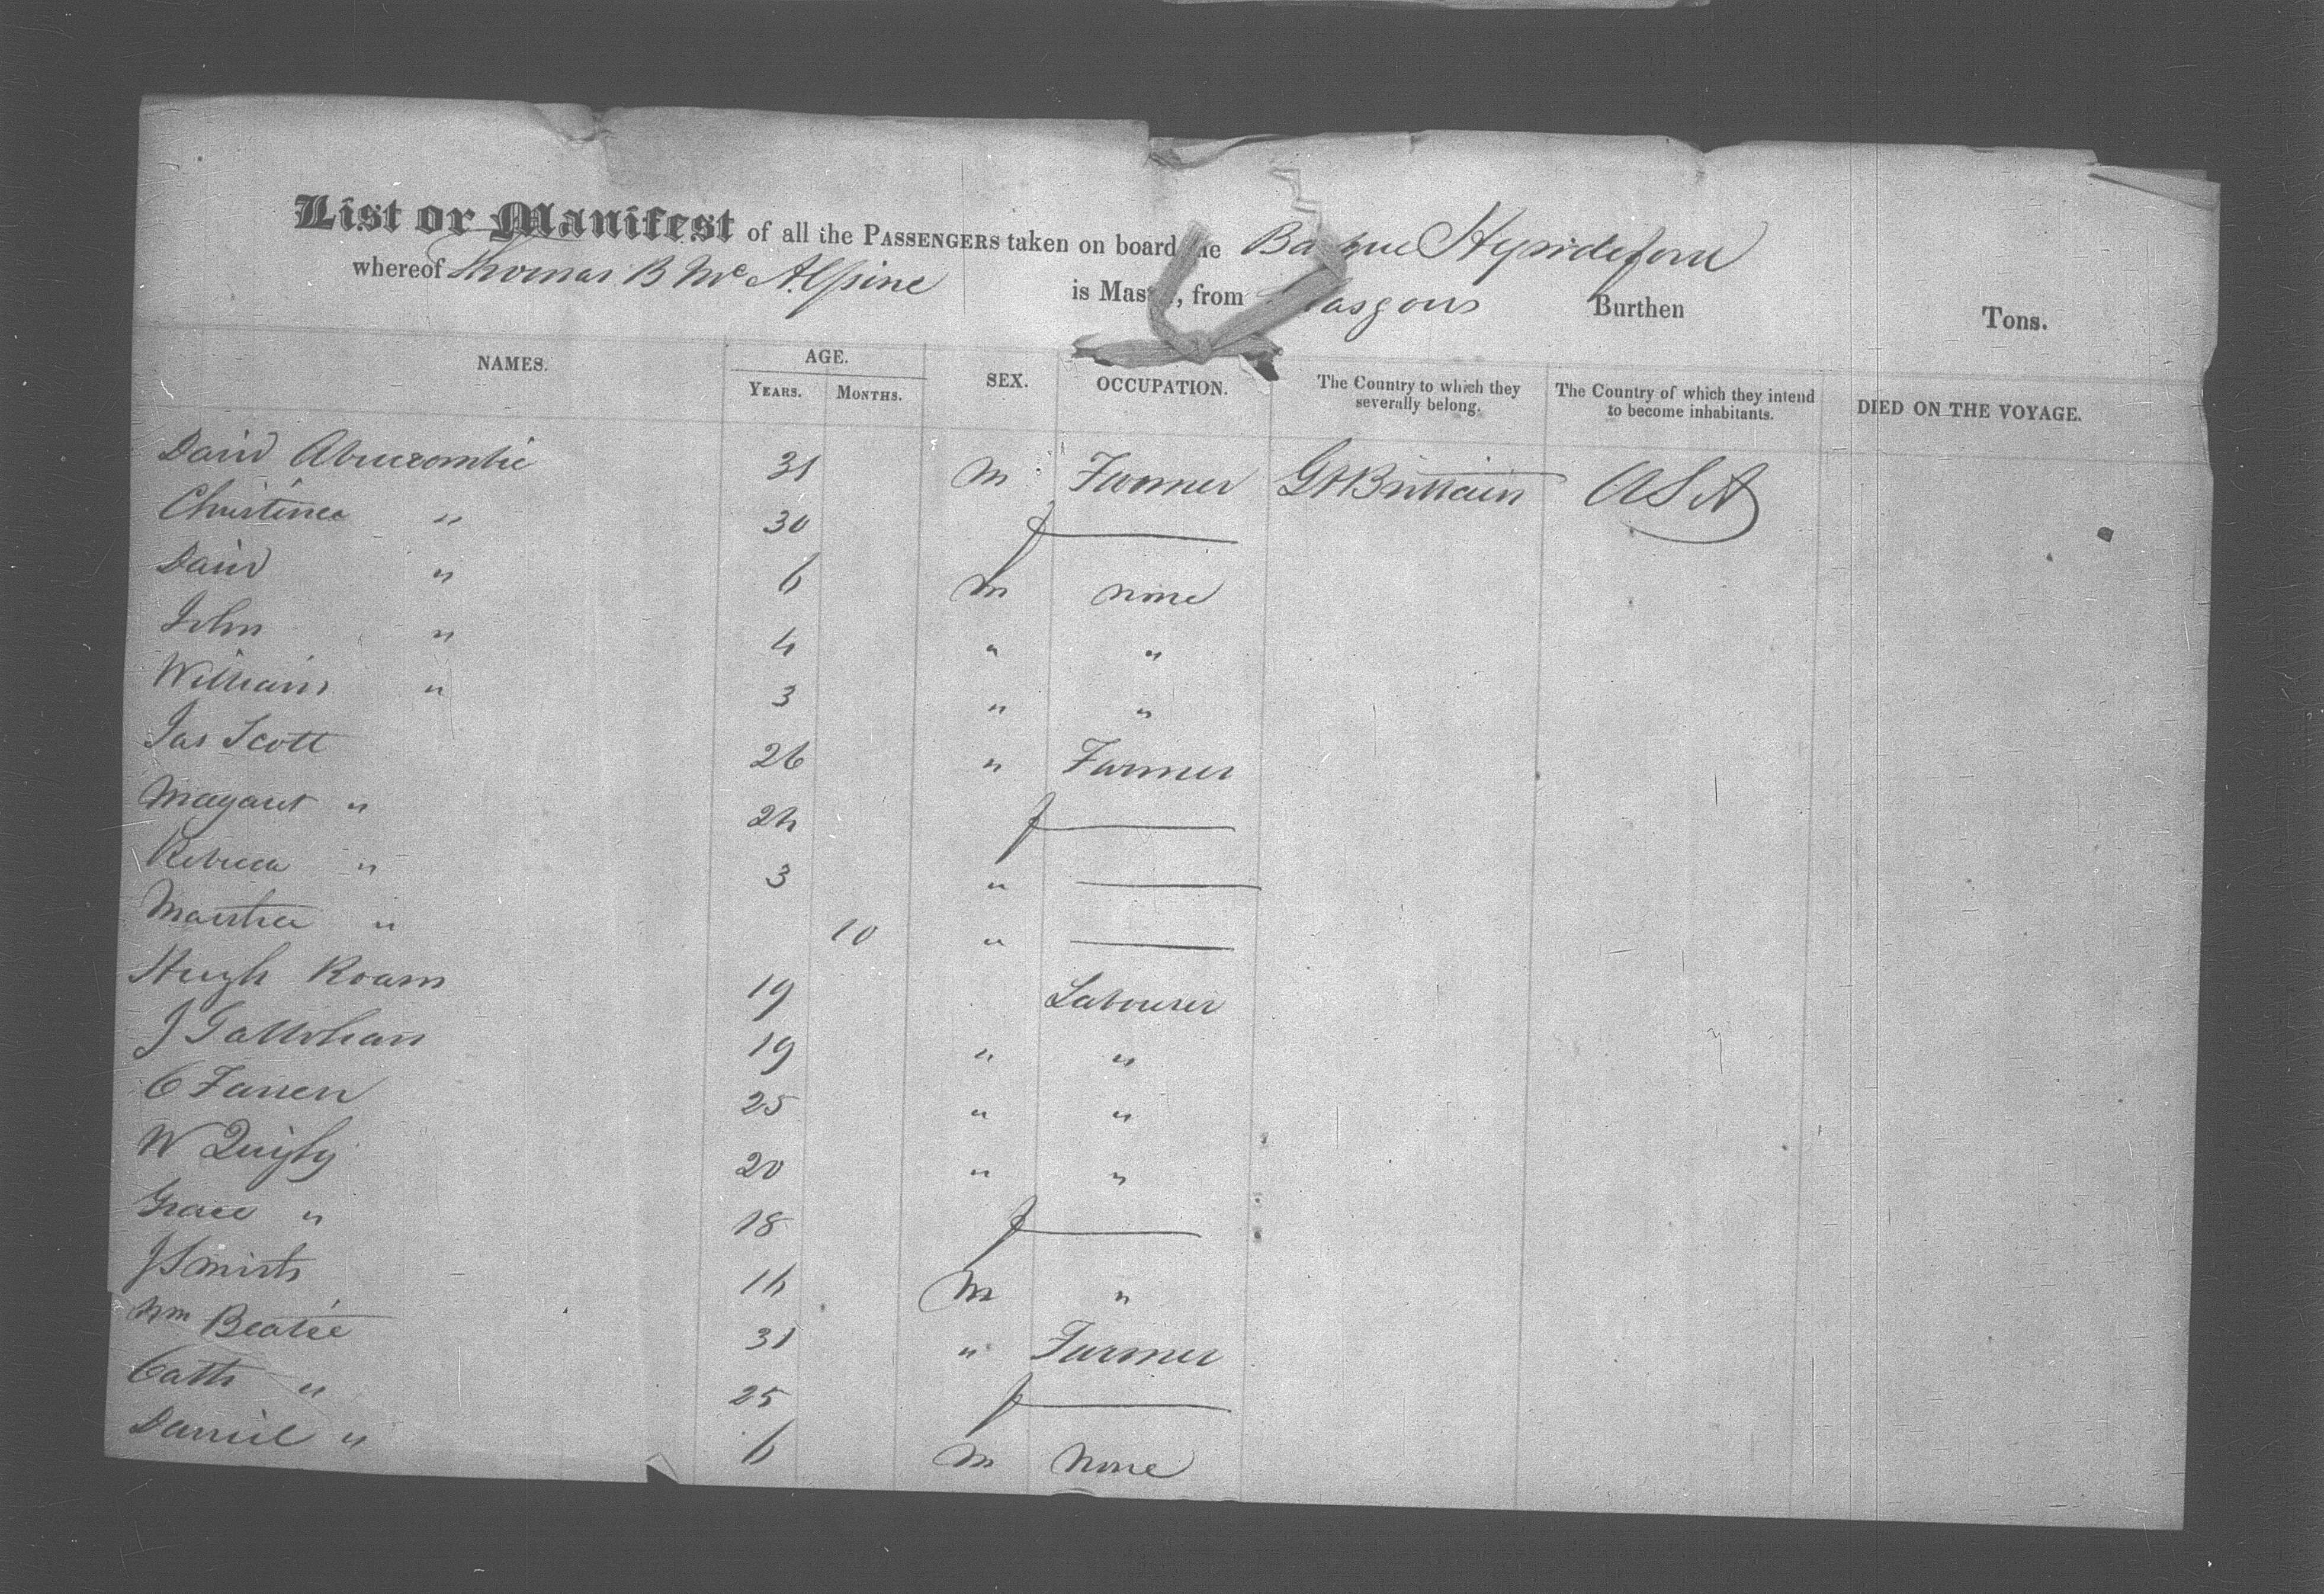 List or Manifest of all the PASSENGERS taken on board the Barque Hyndeford
whereof Thomas B McAlpine is Master, from Glasgow Burthen Tons.
NAMES. AGE. YEARS. MONTHS. SEX. OCCUPATION. The Country to which they severally belong. The Country of which they intend to become inhabitants. DIED ON THE VOYAGE.
David Abercrombie 31 M Farmer Gt Brittain USA
Christina " 30 f
David " 6 M none
John " 4 " "
William " 3 " "
Jas Scott 26 " Farmer
Magaret " 24 f
Rebecca " 3 "
Martha " 10 "
Hugh 19 Labourer
J 19 " "
C Farren 25 " "
W Quigly 20 " "
Grace " 18 f
J 14 M "
Wm Beatie 31 " Farmer
Cath " 25 f
Daniel " 6 M none